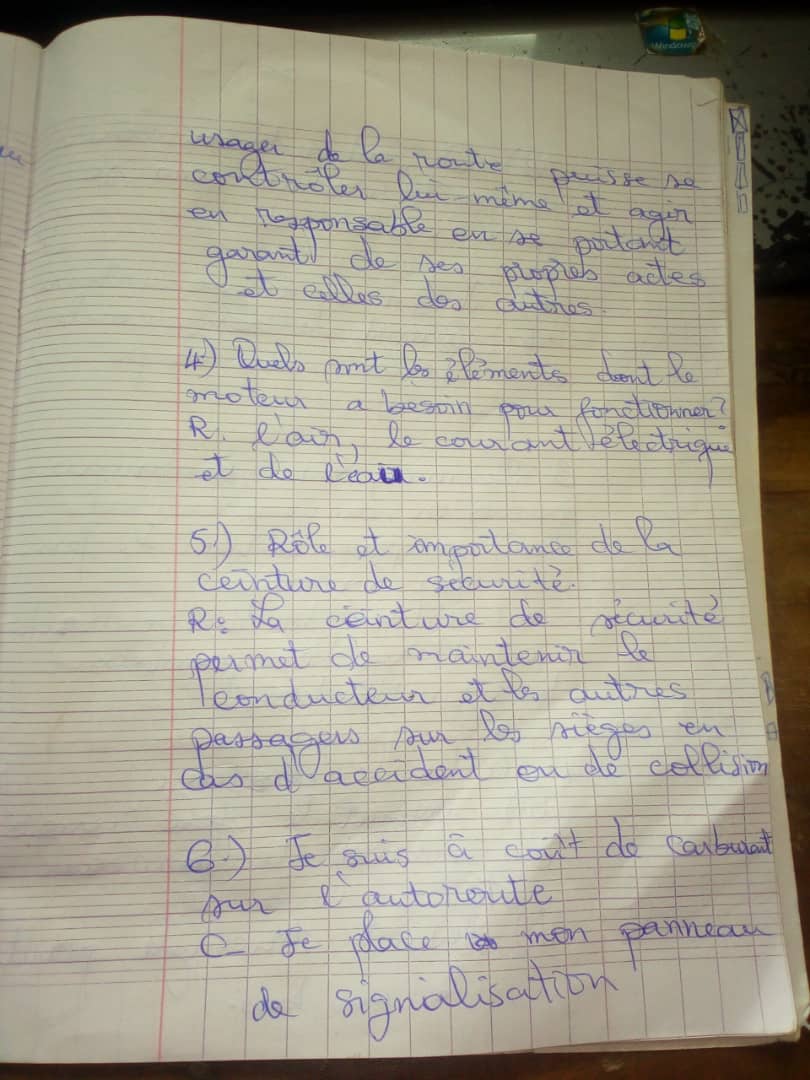 usager de la route puisse se
contrôler lui-même et agir
en responsable en se portant
garant de ses propres actes
et celles des autres.
4.) Quels sont les éléments dont le
moteur a besoin pour fonctionner?
R. l'air, le courant électrique
et de l'eau.
5.) Rôle et importance de la
ceinture de sécurité.
R: La ceinture de sécurité
permet de maintenir le
conducteur et les autres
passagers sur les sièges en
cas d'accident ou de collision
6.) Je suis à coût de carburant
sur l'autoroute
C- Je place mon panneau
de signalisation
Windows